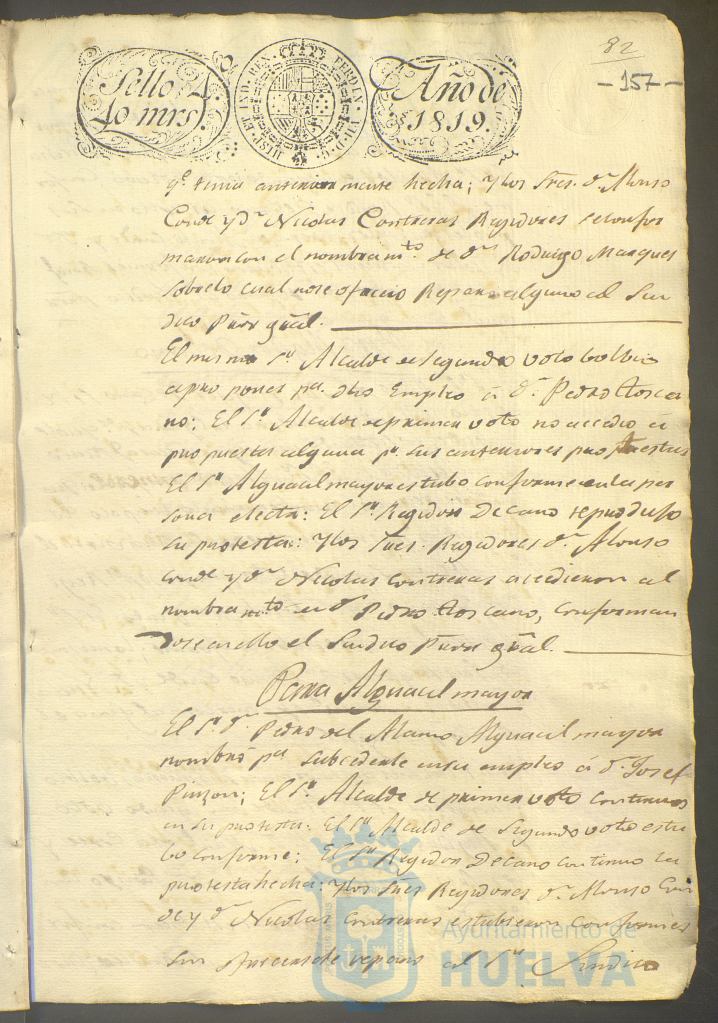 82
-157-
Sello 4.
40 mrs.
HISP. ET IND. REX. FERDIN. VII. D. G.
Año de
1819.
q.e tenia anteriormente hecha; y los Sres. D.n Alonso
Conde y D.n Nicolas Contreras Regidores se confor
maron con el nombram.to de D.n Rodrigo Marques
sobre lo cual no se ofrecio Reparo alguno al Sin
dico Pror gral.
El mismo S.or Alcalde de segundo voto bolbio
a proponer p.a dho Empleo á D.n Pedro Tosca
no; El S.or Alcalde de primer voto no accedio á
propuesta alguna p.r sus anteriores protestas
El S.or Alguacil mayor estubo conforme en la per
sona electa: El S.or Regidor Decano reprodujo
su protesta: y los Sres. Regidores D.n Alonso
Conde y D.n Nicolas Contreras accedieron al
nombram.to en D.n Pedro Toscano, conforman
dose en ello el Sindico Pror gral.
Para Alguacil mayor
El S.or D.n Pedro del Alamo Alguacil mayor
nombró p.a subcedente en su empleo á D.n Josef
Pinzon; El S.or Alcalde de primer voto continuó
en su protesta: El S.or Alcalde de Segundo voto estu
bo conforme; El S.or Regidor Decano continuó la
protesta hecha: y los Sres Regidores D.n Alonso Con
de y D.n Nicolas Contreras estubieron conformes
sin ofrecersele reparo al S.or Sindico
Ayuntamiento de
HUELVA